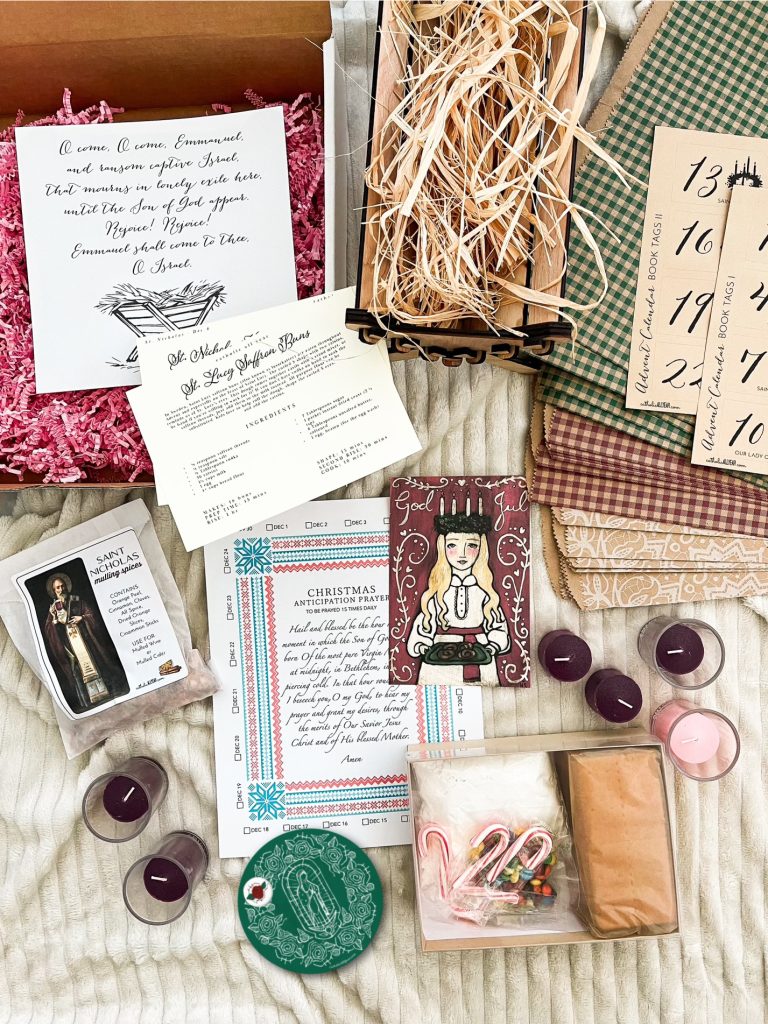 O come, O come, Emmanuel,
and ransom captive Israel,
that mourns in lonely exile here,
until the Son of God appear.
Rejoice! Rejoice!
Emmanuel shall come to thee,
O Israel.
St. Nichol
St. Lucy Saffron Buns
INGREDIENTS
MAKES: 16 buns
PREP TIME: 15 mins
RISE: 1 hr
SHAPE: 15 mins
SECOND RISE: 30 mins
COOK: 10 mins
13
16
19
22
Advent Calendar BOOK TAGS II
4
7
10
OUR LADY O
Advent Calendar BOOK TAGS I
SAINT
NICHOLAS
mulling spices
CONTAINS
Orange Peel
Cinnamon, Cloves
All Spice
Dried Orange
Slices
Cinnamon Sticks
USE FOR
Mulled Wine
or
Mulled Cider
DEC 1
DEC 2
DEC 3
DEC 24
DEC 23
DEC 22
DEC 21
DEC 20
DEC 19
DEC 18
DEC 17
DEC 16
DEC 15
DEC 10
CHRISTMAS
ANTICIPATION PRAYER
TO BE PRAYED 15 TIMES DAILY
Hail and blessed be the hour a
moment in which the Son of Go
born Of the most pure Virgin
at midnight, in Bethlehem, in
piercing cold. In that hour vou
I beseech you, O my God, to hear my
prayer and grant my desires, through
the merits of Our Savior Jesus
Christ and of His blessed Mother.
Amen
God Jul